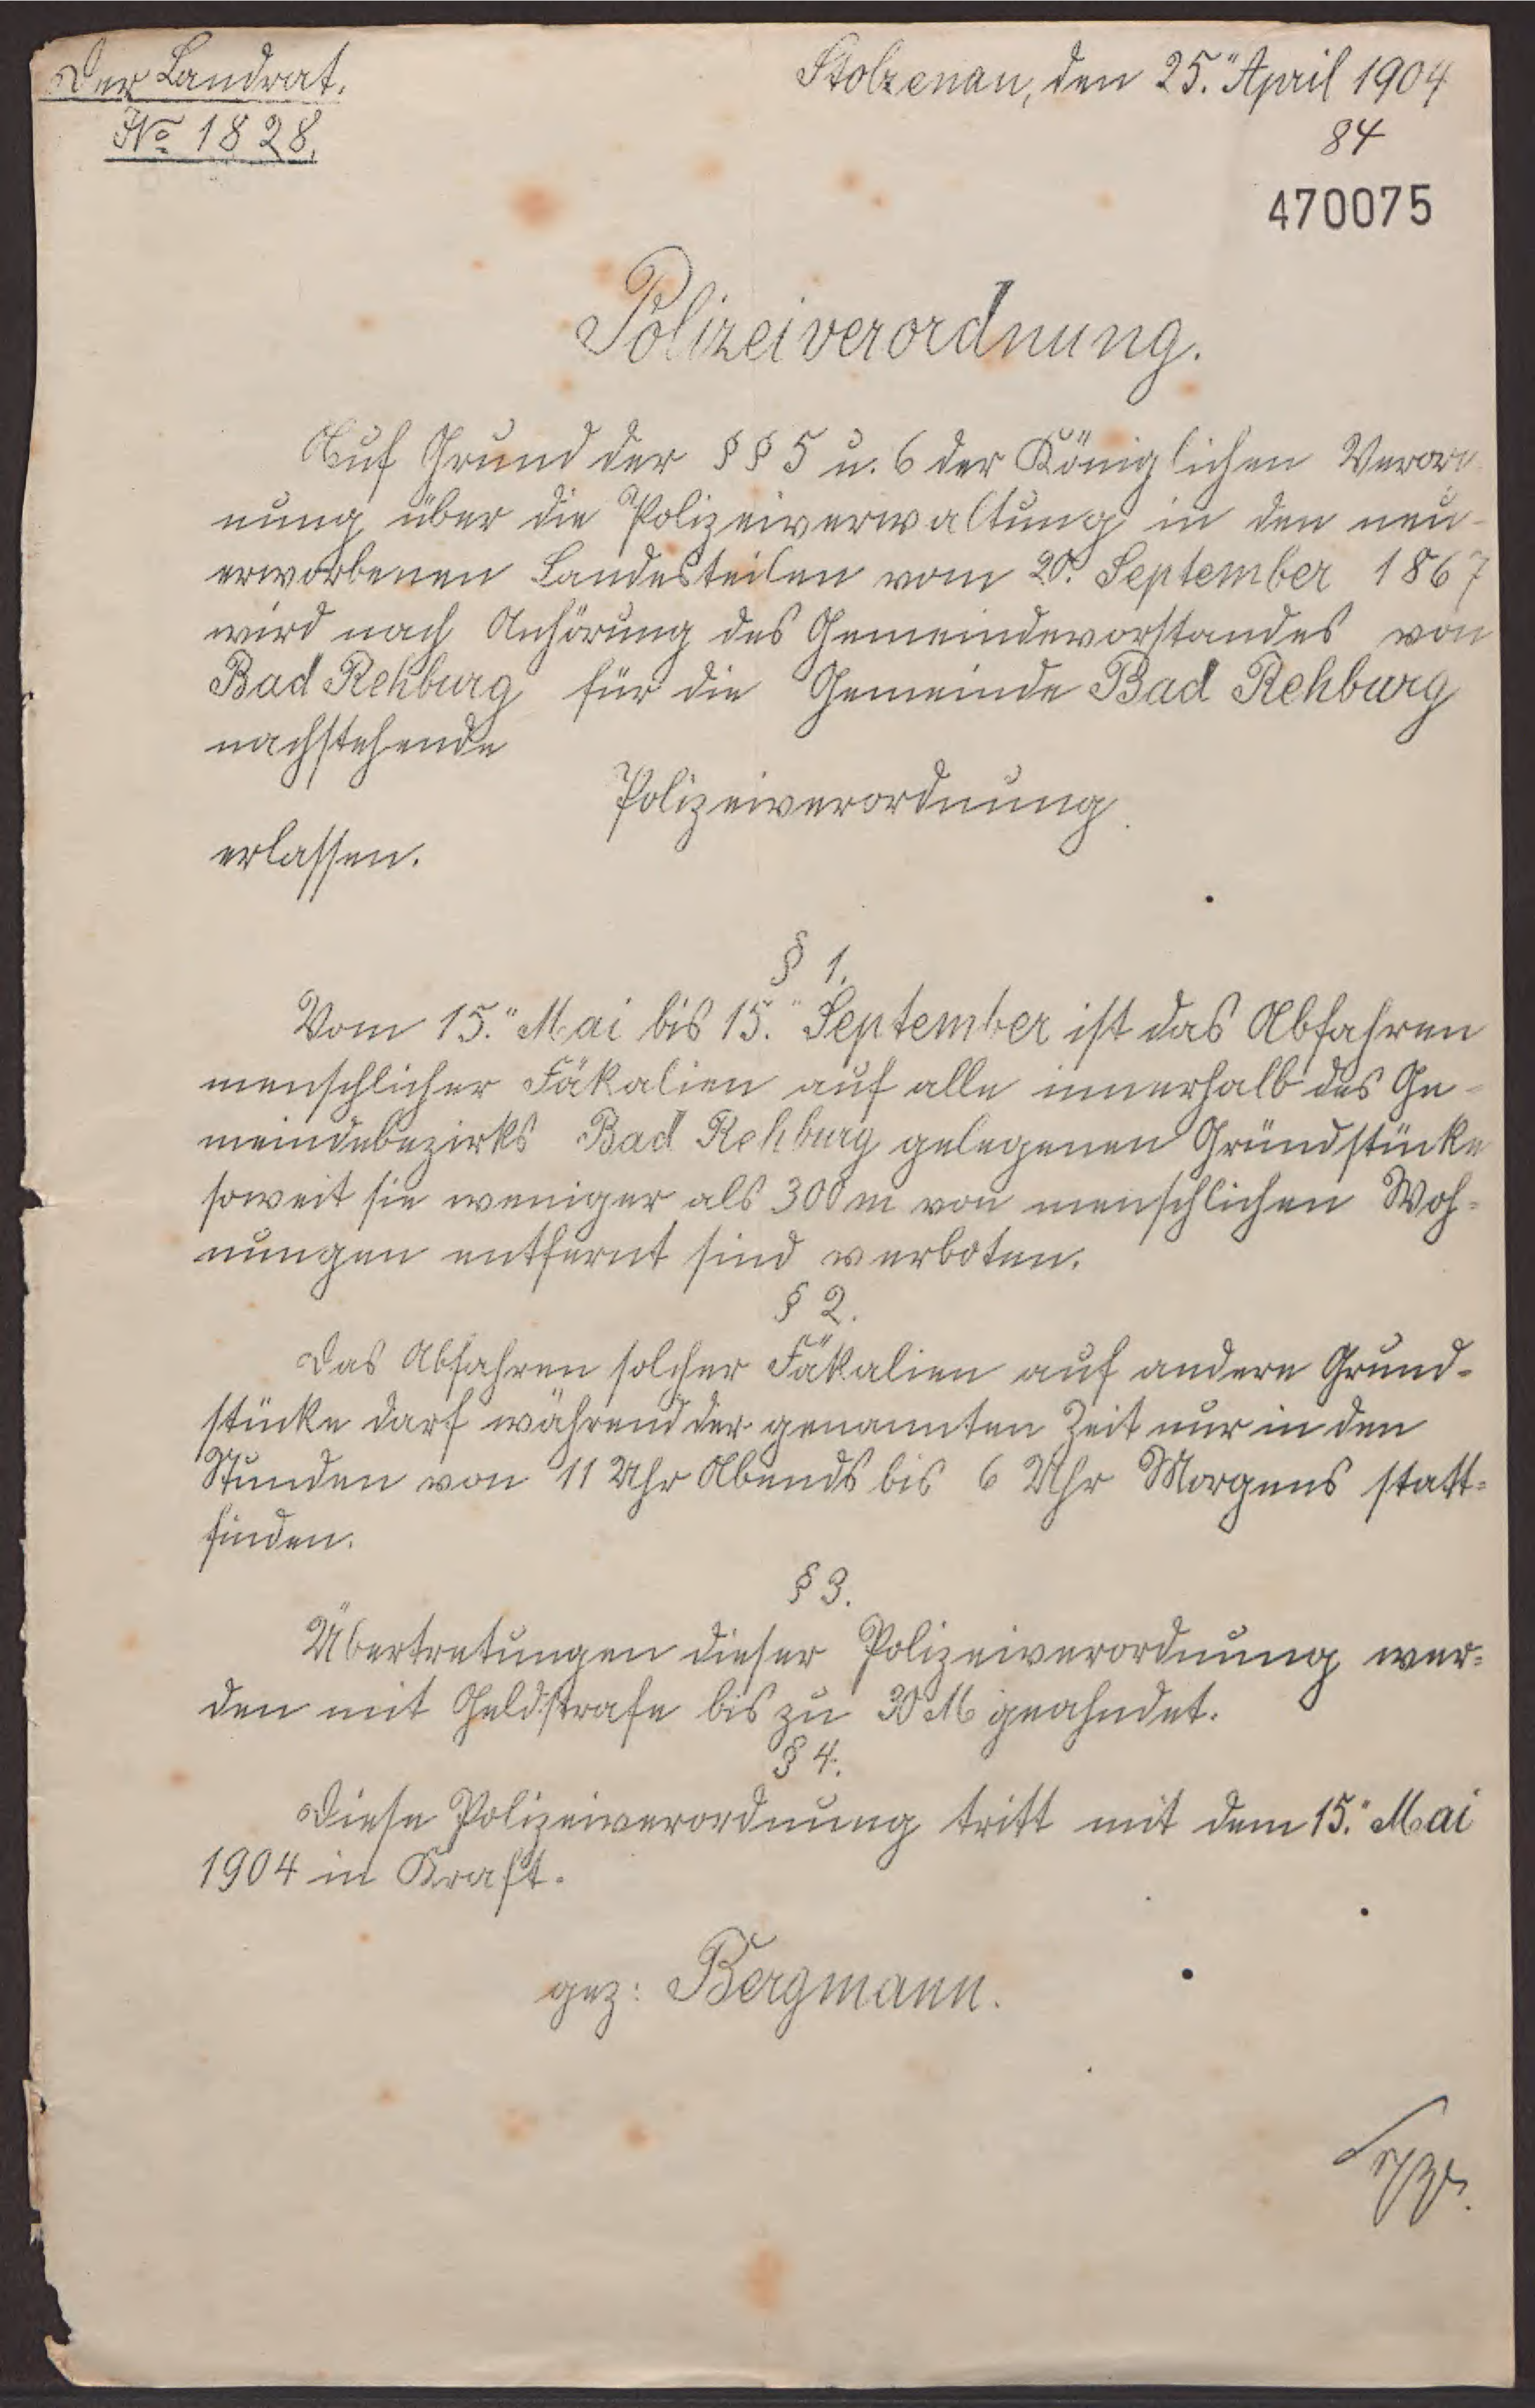 Der Landrat.
No 1828.
Stolzenau, den 25." April 1904
84
470075
Polizeiverordnung.
Auf Grund der §§ 5 u. 6 der Königlichen Verord
nung über die Polizeiverwaltung in den neu-
erworbenen Landesteilen vom 20. September 1867
wird nach Anhörung des Gemeindevorstandes von
Bad Rehburg für die Gemeinde Bad Rehburg
nachstehende
Polizeiverordnung.
erlassen.
§ 1.
Vom 15." Mai bis 15." September ist das Abfahren
menschlicher Fäkalien auf alle innerhalb des Ge-
meindebezirks Bad Rehburg gelegenen Gründstücke
soweit sie weniger als 300 m von menschlichen Woh-
nungen entfernt sind verboten.
§ 2.
Das Abfahren solcher Fäkalien auf andere Grund-
stücke darf während der genannten Zeit nur in den
Stunden von 11 Uhr Abends bis 6 Uhr Morgens statt-
finden.
§ 3.
Übertretungen dieser Polizeiverordnung wer-
den mit Geldstrafe bis zu 30 M geahndet.
§ 4.
Diese Polizeiverordnung tritt mit dem 15." Mai
1904 in Kraft.
gez: Bergmann.